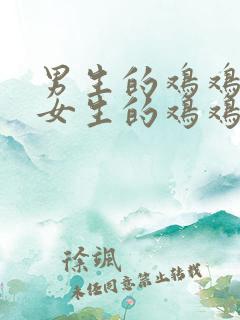 男生的鸡鸡
女生的鸡鸡
徐飒
未经同意禁止转载